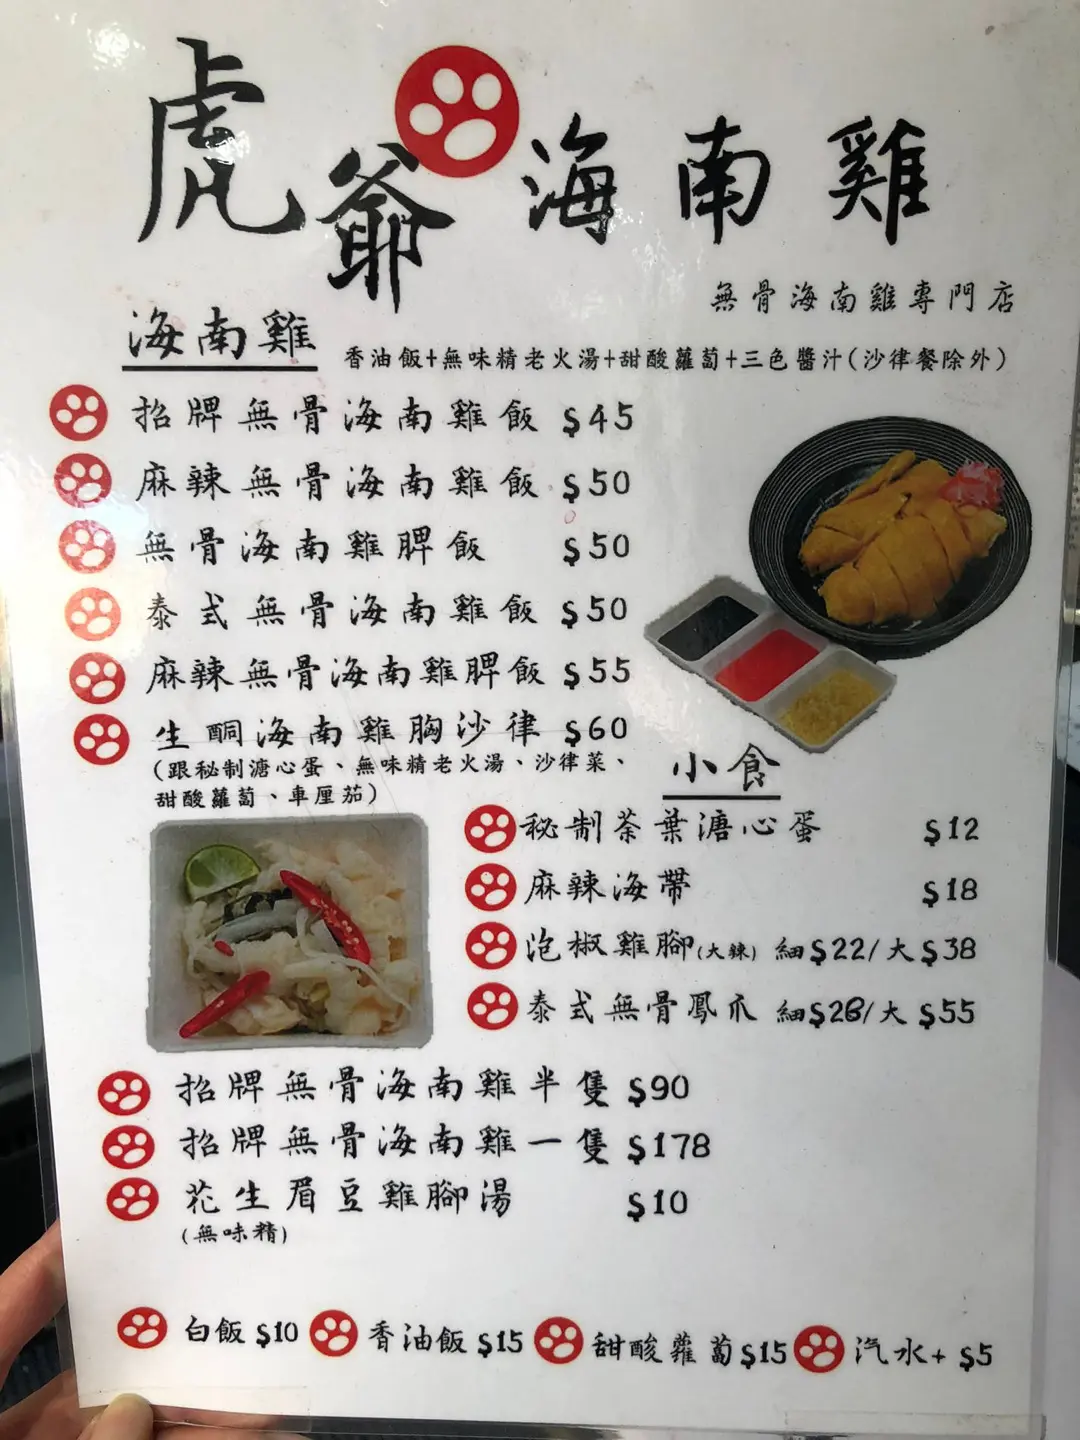 虎爺海南雞
無骨海南雞專門店
海南雞
香油飯+無味精老火湯+甜酸蘿蔔+三色醬汁(沙律餐除外)
招牌無骨海南雞飯 $45
麻辣無骨海南雞飯 $50
無骨海南雞髀飯 $50
泰式無骨海南雞飯 $50
麻辣無骨海南雞髀飯 $55
生酮海南雞胸沙律 $60
(跟秘制溏心蛋、無味精老火湯、沙律菜、
甜酸蘿蔔、車厘茄)
小食
秘制茶葉溏心蛋 $12
麻辣海帶 $18
泡椒雞腳(大辣) 細$22/大$38
泰式無骨鳳爪 細$28/大$55
招牌無骨海南雞半隻 $90
招牌無骨海南雞一隻 $178
花生眉豆雞腳湯 $10
(無味精)
白飯 $10 香油飯 $15 甜酸蘿蔔 $15 汽水+ $5